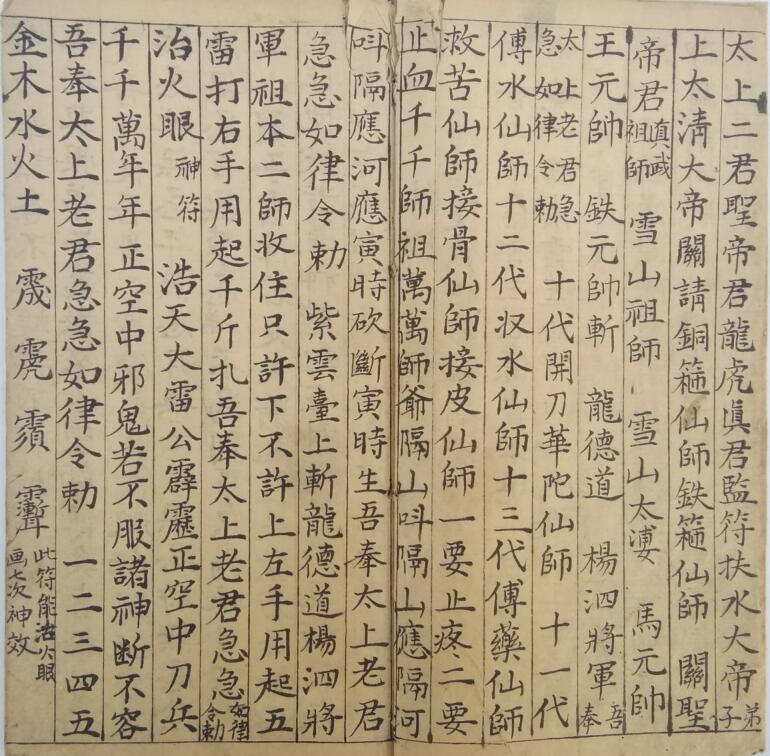 太上二君聖帝君龍虎眞君監符扶水大帝弟子
上太清大帝關請銅箍仙師鉄箍仙師 關聖
帝君真武祖師 雪山祖師 雪山太漊 馬元帥
王元帥 鉄元帥斬 龍德道 楊泗將軍吾奉
太上老君急急如律令勅 十代開刀華陀仙師 十一代
傅水仙師十二代収水仙師十三代傅藥仙師
救苦仙師接骨仙師接皮仙師一要止疼二要
止血千千師祖萬萬師爺隔山呌隔山應隔河
呌隔應河應寅時砍斷寅時生吾奉太上老君
急急如律令勅 紫雲臺上斬龍德道楊泗將
軍祖本二師收住只許下不許上左手用起五
雷打右手用起千斤扎吾奉太上老君急急如律令勅
治火眼神符 浩天大雷公霹靂正空中刀兵
千千萬年年正空中邪鬼若不服諸神断不容
吾奉太上老君急急如律令勅 一二三四五
金木水火土 此符能治火眼画七次神效